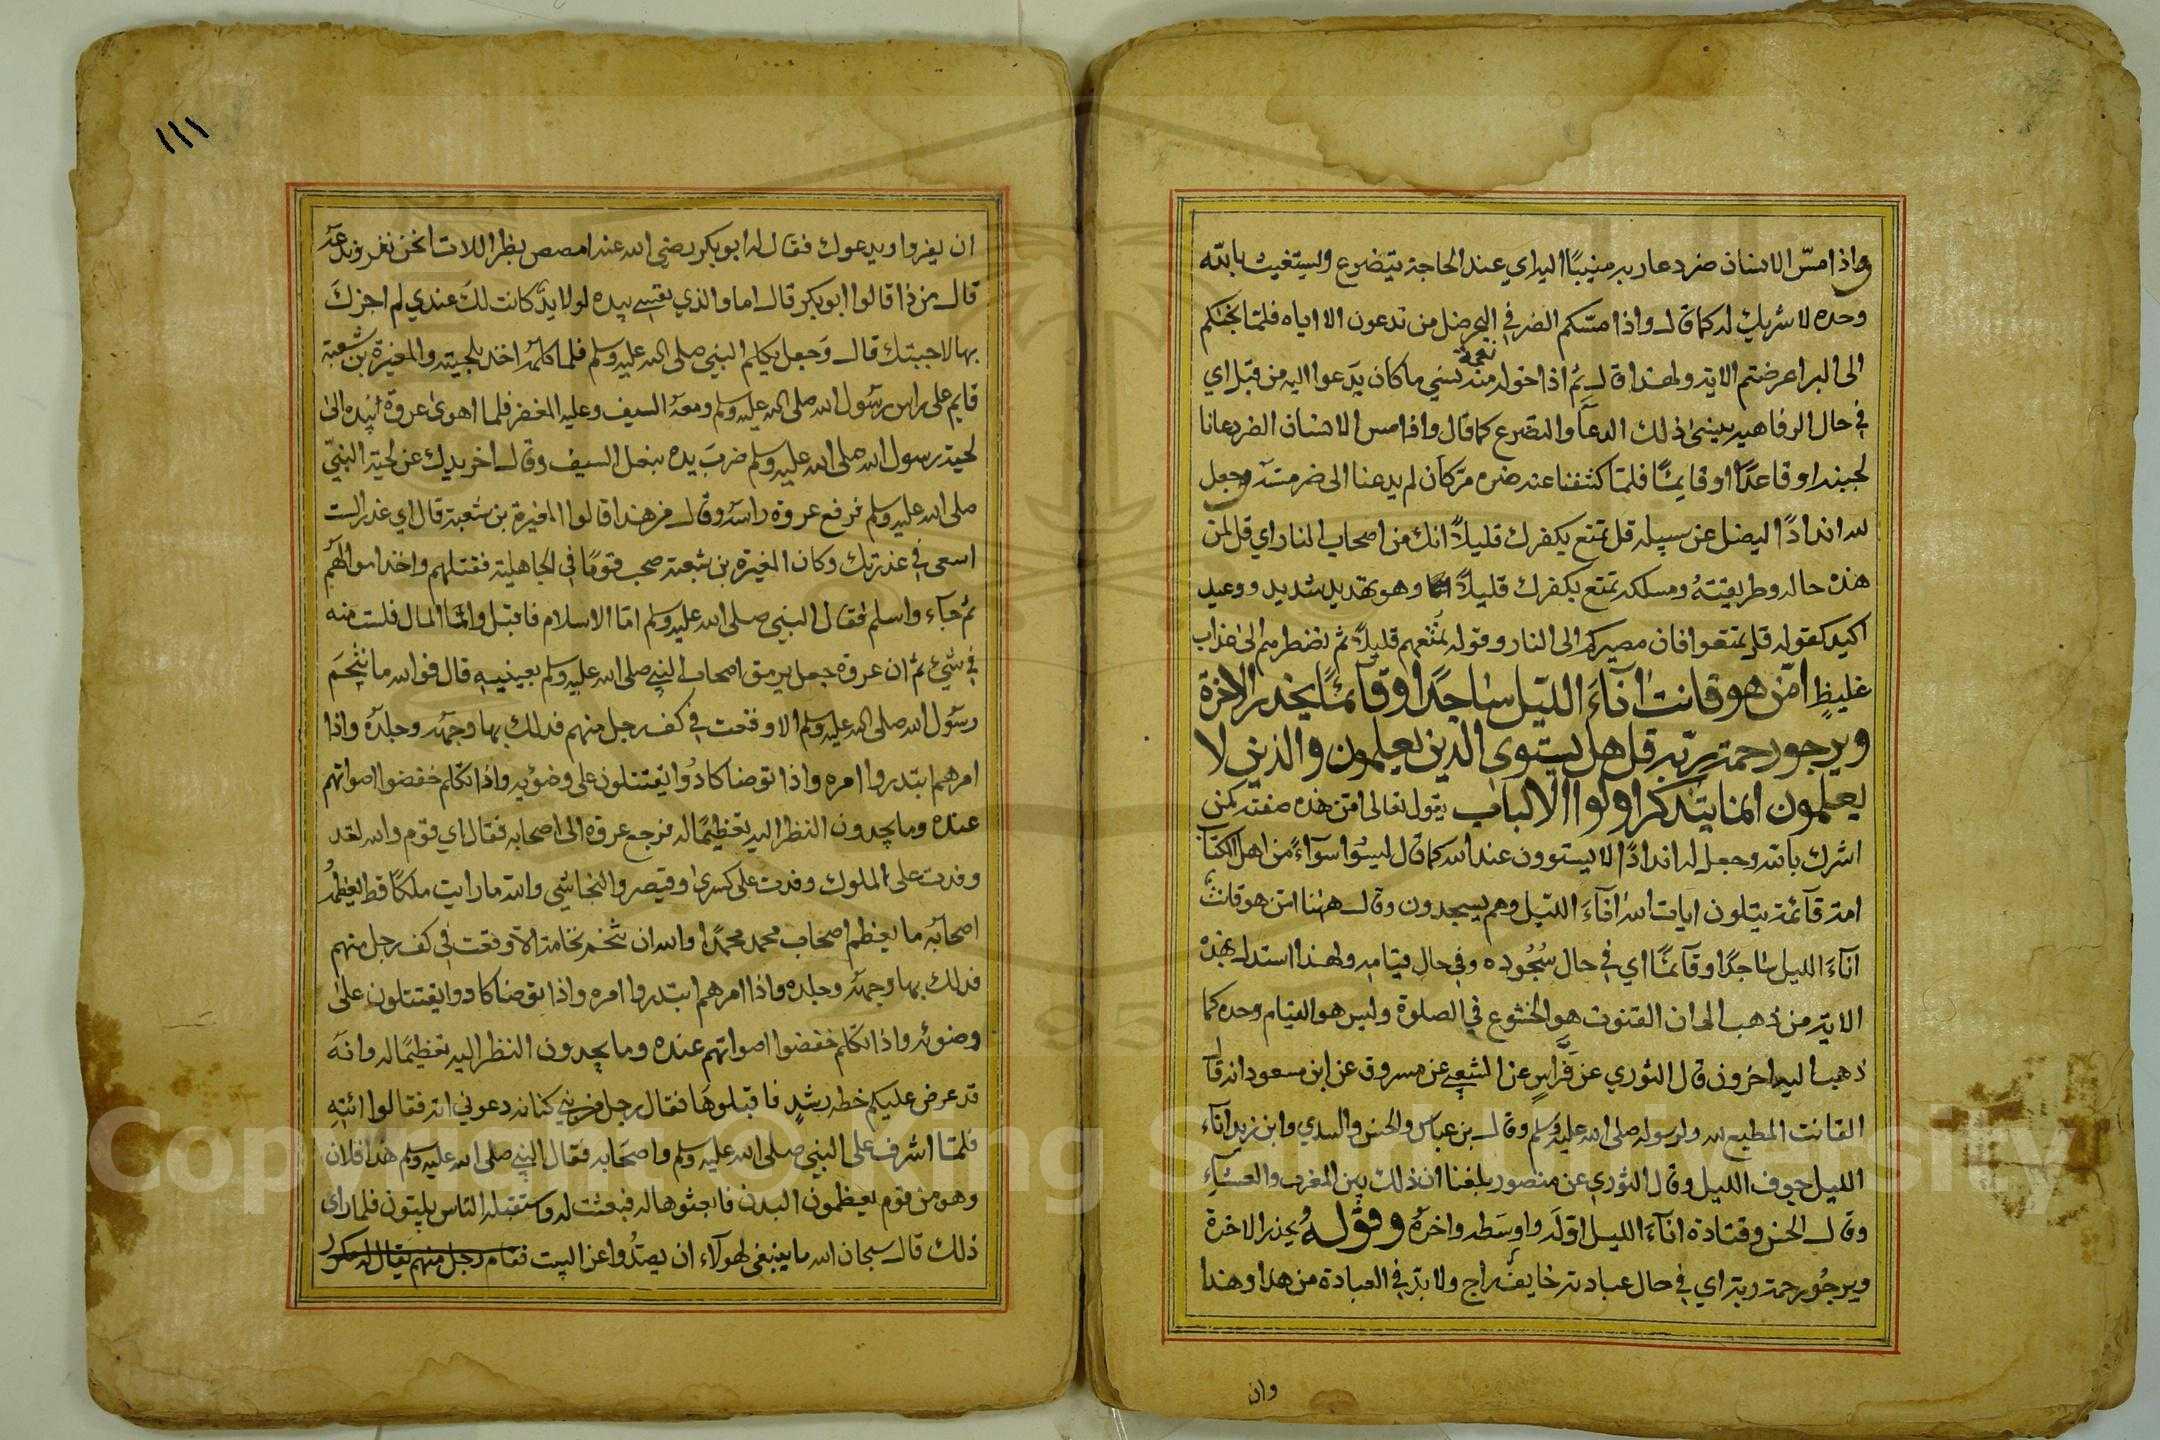 واذا مسّ الانسان ضر دعا ربه منيبًا اليه اي عند الحاجة يتضرع ويستغيث بالله
وحده لا شريك له كما قال واذا مسّكم الضر في البحر ضل من تدعون الا اياه فلمّا نجٰىكم
الى البر اعرضتم الاية ولهذا قال ثم اذا خوله نعمة منه نسي ما كان يدعوا اليه من قبل اي
في حال الرفاهية ينسى ذلك الدعآ والتضرع كما قال واذا مس الانسان الضر دعانا
لجنبه او قاعدًا او قايمًا فلمّا كشفنا عنه ضره مرّ كان لم يدعنا الى ضر مسّه وجعل
لله اندادًا ليضل عن سبيله قل تمتع بكفرك قليلاً انك من اصحاب النار اي قل لمن
هذه حاله وطريقته ومسلكه تمتع بكفرك قليلاً وهو تهديد شديد ووعيد
اكيد كقوله قل تمتعوا فان مصيركم الى النار وقوله نمتعهم قليلاً ثم نضطرهم الى عذاب
غليظٍ امّن هو قانت اٰنآءَ الليّل ساجدًا وقآئمًا يحذر الاخرة
ويرجو رحمة ربّه قل هل يستوى الذين يعلمون والذين لا
يعلمون انما يتذكر اولوا الالباب يقول تعالى امّن هذه صفته كمن
اشرك بالله وجعل له اندادًا لا يستوون عند الله كما قال ليسُوا سوآءً من اهل الكتاب
امة قآئمة يتلون ايات الله اٰنآءَ الليّل وهم يسجدون وقال ههٰنا امّن هو قانتٌ
اٰنآءَ الليل ساجدًا وقآئمًا اي في حال سُجُوده وفي حال قيامه ولهذا استدل بهذه
الاية من ذهب الى ان القنوت هو الخشوع في الصلوة وليس هو القيام وحده كما
ذهب اليه اخرون قال الثوري عن فراسٍ عن الشعبي عن مسروق عن ابن مسعود انه قال
القانت المطيع لله ولرسوله صلى الله عليه وسلم وقال بن عباس والحسن والسدي وابن زيد اٰنآء
الليل جوف الليل وقال الثوري عن منصور بلغنا ان ذلك بين المغرب والعشاء
وقال الحسن وقتادة اٰنآءَ الليل اوّلَه واوسَطه واخرهُ وقوله يحذر الاخرة
ويرجُو رحمة ربّه اي في حال عبادته خايفٌ راجٍ ولا بدّ في العبادة من هذا وهذا
وان
١١١
ان يفروا ويدعوك فقال له ابو بكر رضي الله عنه امصص بظر اللات انحن نفر وندعه
قال من ذا قالوا ابو بكر قال اما والذي نفسي بيده لولا يدٌ كانت لك عندي لم اجزك
بها لاجبتك قال وَجعل يكلم النبي صلى الله عليه وسلم فلما كلّمه اخذ بلحيته والمغيرة بن شعبة
قايم على راس رسول الله صلى الله عليه وسلم ومعه السيف وعليه المغفر فلما اهوى عروة بيده الى
لحية رسول الله صلى الله عليه وسلم ضربَ يده بنعل السيف وقال اخر يدك عن لحية النبي
صلى الله عليه وسلم فرفع عروة راسه وقال من هذا قالوا المغيرة بن شعبة قال اي غدر الست
اسعى في غدرتك وكان المغيرة بن شعبة صحب قومًا في الجاهلية فقتلهم واخذ اموالهم
ثم جآء واسلم فقال النبي صلى الله عليه وسلم امّا الاسلام فاقبل وامّا المال فلست منه
في شئ ثم ان عروة جعل يرمق اصحاب النبي صلى الله عليه وسلم بعينيه قال فوالله ما تنخّمَ
رسول الله صلى الله عليه وسلم الا وقعت في كف رجل منهم فدلك بها وجهه وجلده واذا
امرهم ابتدروا امره واذا توضا كادُوا يقتتلون على وضوئه واذا تكلم خفضوا اصواتهم
عنده وما يحدون النظر اليه تعظيمًا له فرجع عروة الى اصحابه فقال اي قوم والله لقد
وفدت على الملوك وفدت على كسرى وقيصر والنجاشي والله ما رايت ملكًا قط يعظمُهُ
اصحابه ما يعظم اصحاب محمد محمدًا والله ان تنخم نخامة الا وقعت في كف رجل منهم
فدلك بها وجهه وجلده واذا امرهم ابتدروا امره واذا توضا كادوا يقتتلون على
وضوئه واذا تكلم خفضوا اصواتهم عنده وما يحدون النظر اليه تعظيمًا له وانه
قد عرض عليكم خطه رشدٍ فاقبلوهَا فقال رجل من بني كنانه دعوني اته فقالوا ائتِهِ
فلمّا اشرف على النبي صلى الله عليه وسلم واصحابه فقال النبي صلى الله عليه وسلم هذا فلان
وهو من قوم يعظمون البدن فابعثوها له فبعثت له واستقبله الناس يلبّون فلما راى
ذلك قال سبحان الله ما ينبغى لهولآء ان يصدُّوا عن البيت فقام رجل منهم يقال له مكرز
Copyright © King Saud University